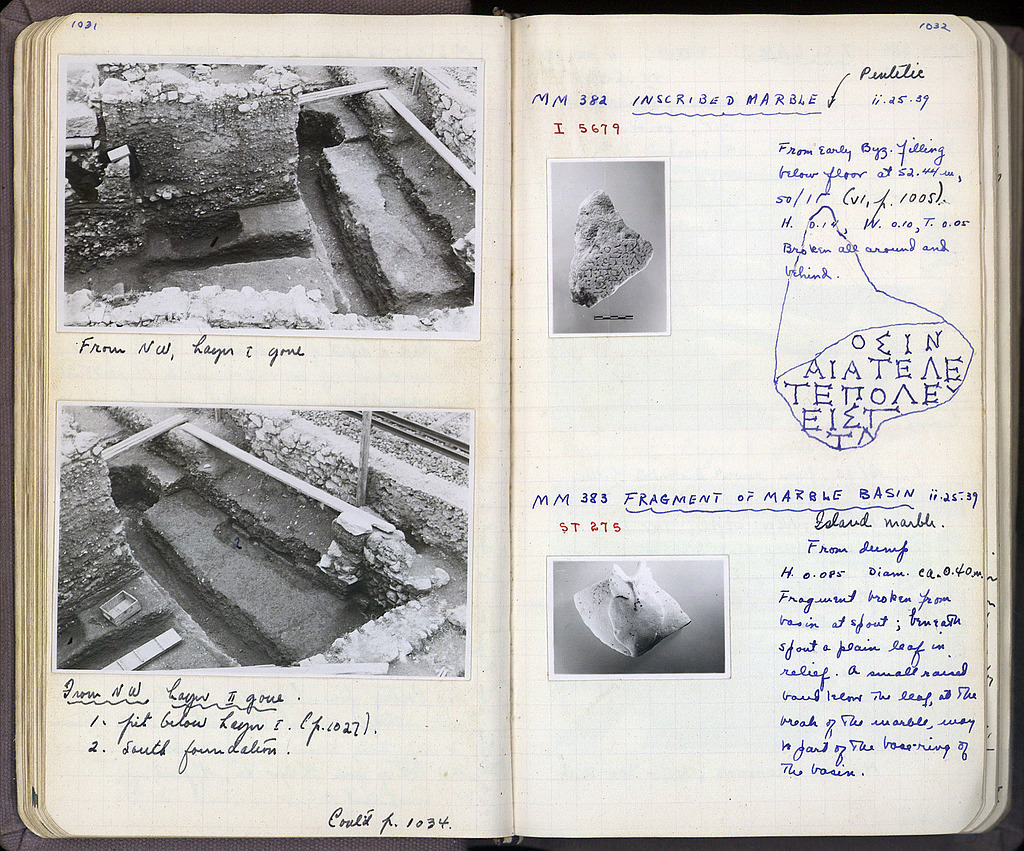 1031
From NW, Layer I gone
From NW, Layer II gone.
1. pit below Layer I. (p.1027).
2. South foundation.
Cont'd p. 1034.
1032
Pentelic
MM 382 INSCRIBED MARBLE ii.25.39
I 5679
From Early Byz. filling
below floor at 52.44 m,
(VI, p. 1005).
H. 0.14, W. 0.10, T. 0.05
Broken all around and
behind.
ΟΣΙΝ
ΑΙΑΤΕΛΕ
ΤΕΠΟΛΕ
ΕΙΣΤ
ΤΛ
MM 383 FRAGMENT OF MARBLE BASIN ii.25.39
ST 275
Island marble.
From dump
H. 0.085 Diam. ca. 0.40 m.
Fragment broken from
basin at spout; beneath
spout a plain leaf in
relief. A small raised
band below the leaf, at the
break of the marble, may
be part of the base-ring of
the basin.